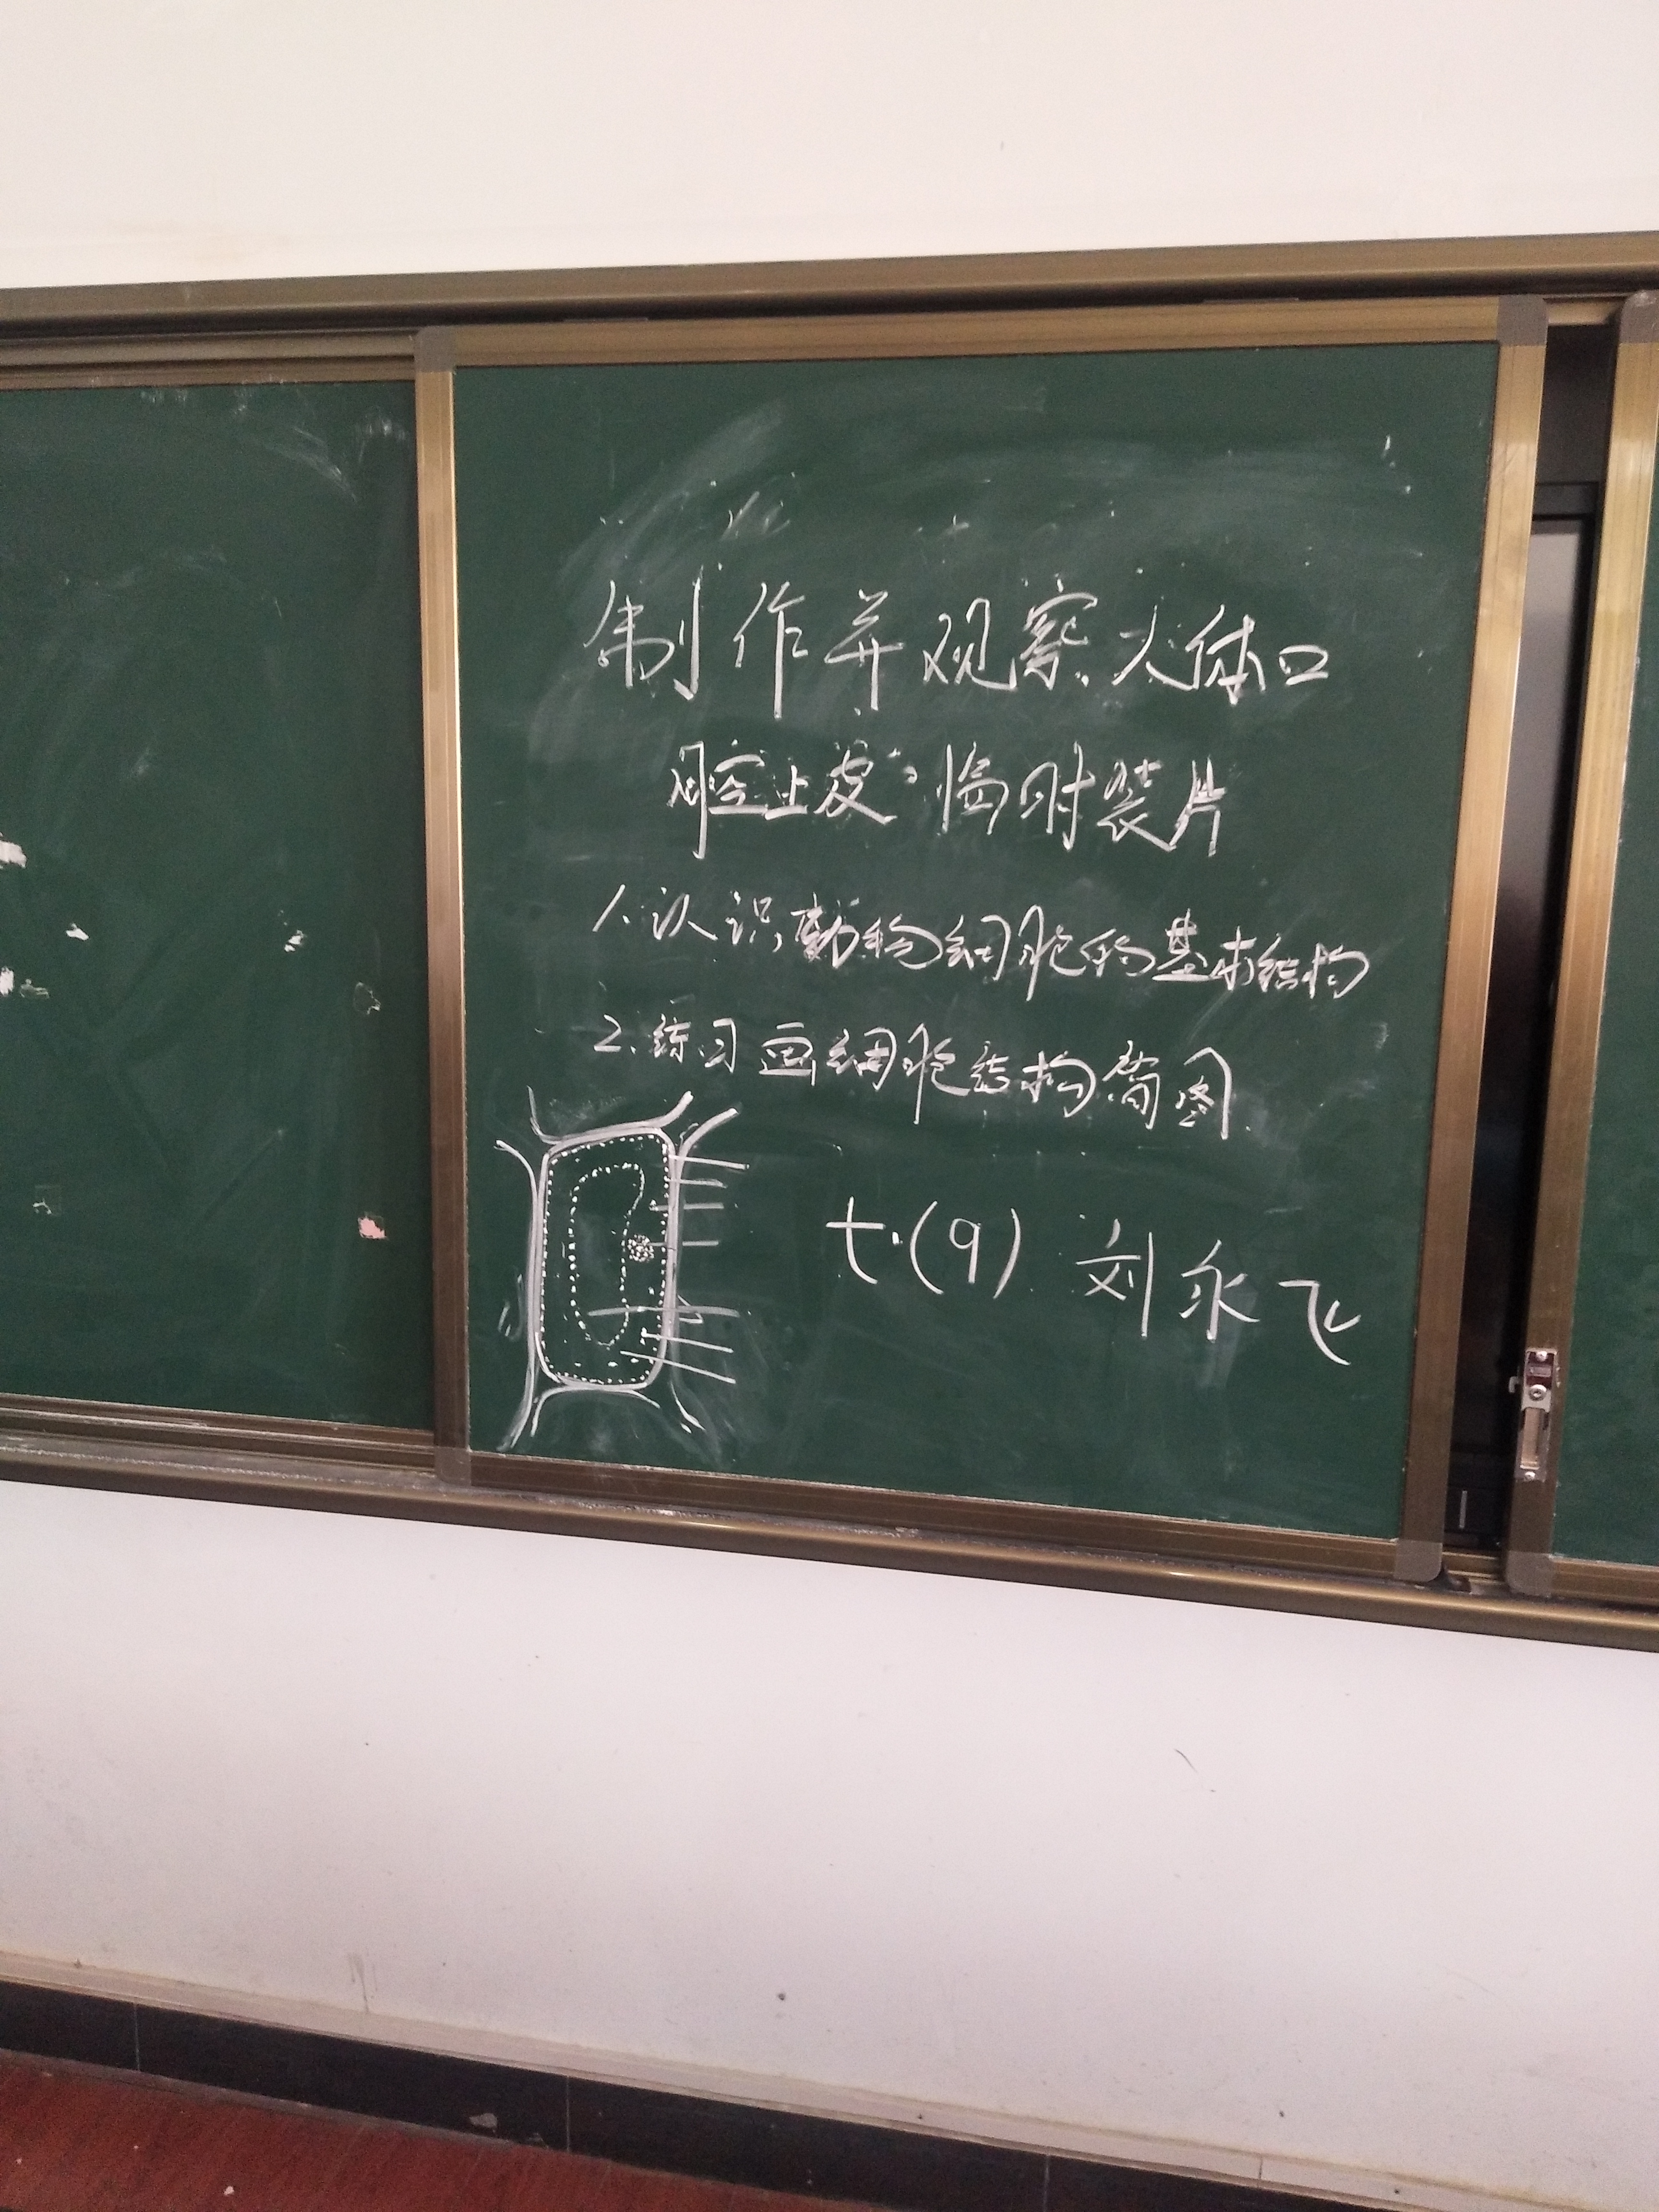 制作并观察人体口
腔上皮临时装片
1.认识动物细胞的基本结构
2.练习画细胞结构简图.
七.(9) 刘永飞